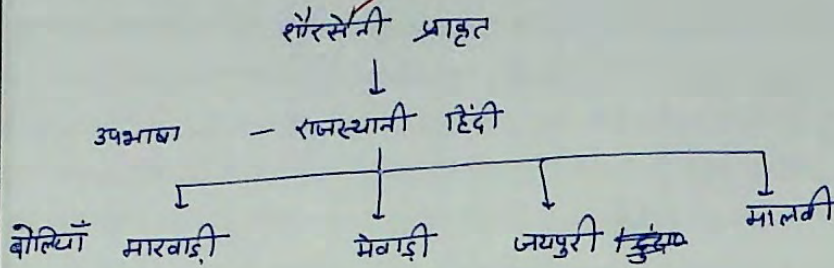 शौरसेनी प्राकृत
उपभाषा – राजस्थानी हिंदी
बोलियाँ मारवाड़ी मेवाड़ी जयपुरी मालवी